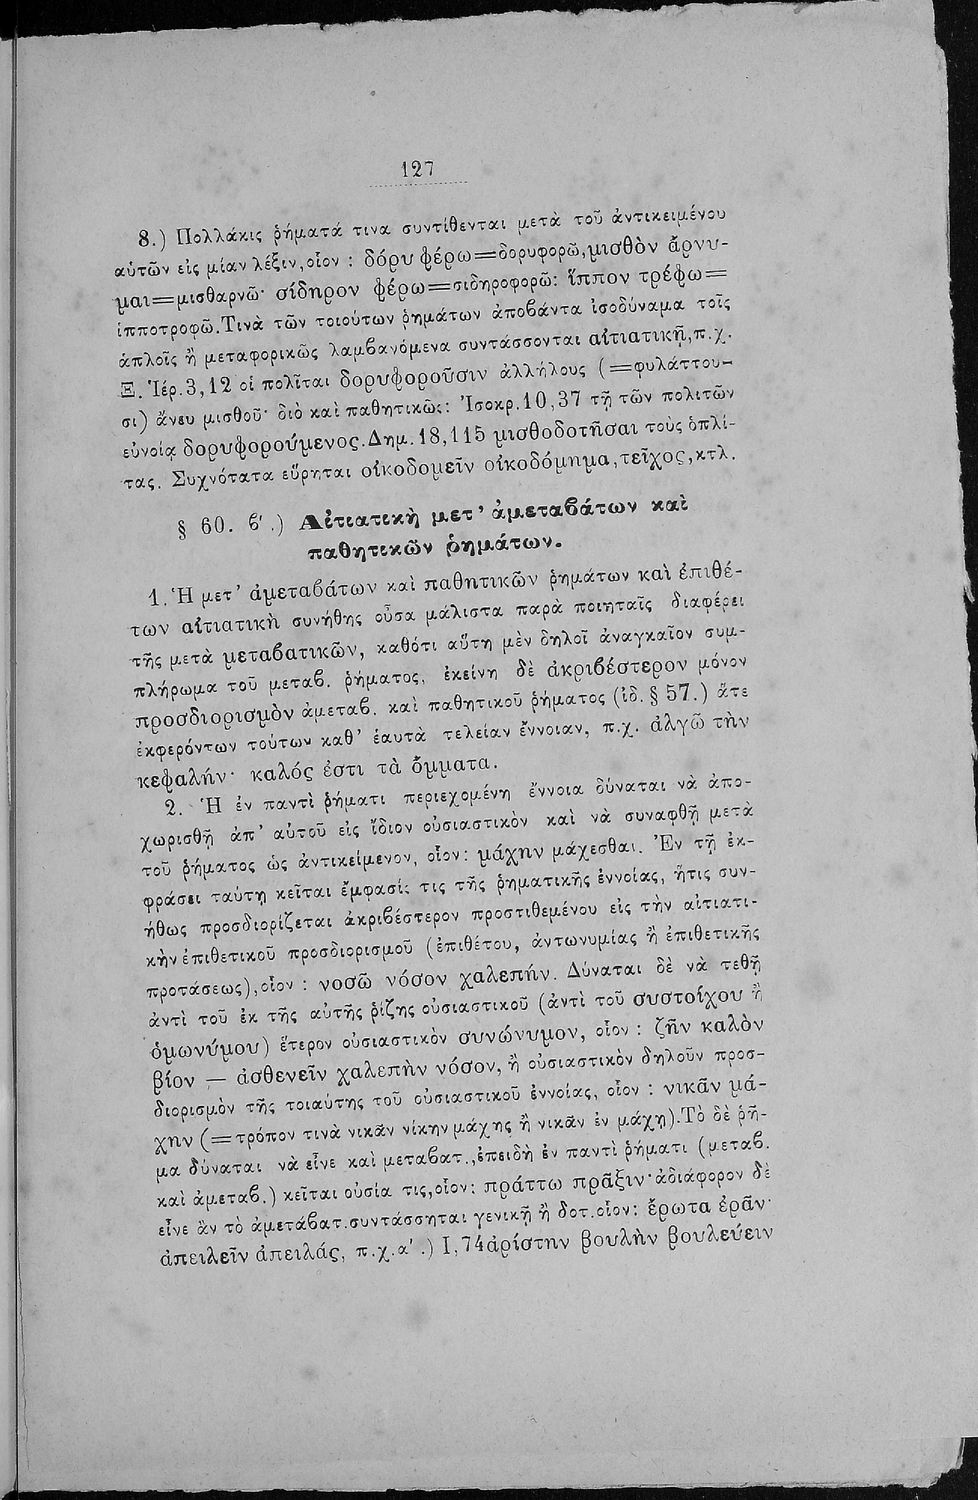 127
8.) Πολλάκις ῥήματά τινα συντίθενται μετὰ τοῦ ἀντικειμένου
αὑτῶν εἰς μίαν λέξιν,οἷον : δόρυ φέρω=δορυφορῶ,μισθὸν ἄρνυ-
μαι=μισθαρνῶ· σίδηρον φέρω=σιδηροφορῶ: ἵππον τρέφω=
ἱπποτροφῶ.Τινὰ τῶν τοιούτων ῥημάτων ἀποβάντα ἰσοδύναμα τοῖς
ἁπλοῖς ἢ μεταφορικῶς λαμβανόμενα συντάσσονται αἰτιατικῇ,π.χ.
Ξ. Ἱέρ.3,12 οἱ πολῖται δορυφοροῦσιν ἀλλήλους (=φυλάττου-
σι) ἄνευ μισθοῦ· διὸ καὶ παθητικῶς: Ἰσοκρ.10,37 τῇ τῶν πολιτῶν
εὐνοίᾳ δορυφορούμενος.Δημ.18,115 μισθοδοτῆσαι τοὺς ὁπλί-
τας. Συχνότατα εὕρηται οἰκοδομεῖν οἰκοδόμημα,τεῖχος,κτλ.
§ 60. β΄.) Αἰτιατικὴ μετ’ ἀμεταβάτων καὶ
παθητικῶν ῥημάτων.
1. Ἡ μετ’ ἀμεταβάτων καὶ παθητικῶν ῥημάτων καὶ ἐπιθέ-
των αἰτιατικὴ συνήθης οὖσα μάλιστα παρὰ ποιηταῖς διαφέρει
τῆς μετὰ μεταβατικῶν, καθότι αὕτη μὲν δηλοῖ ἀναγκαῖον συμ-
πλήρωμα τοῦ μεταβ. ῥήματος, ἐκείνη δὲ ἀκριβέστερον μόνον
προσδιορισμὸν ἀμεταβ. καὶ παθητικοῦ ῥήματος (ἰδ. § 57.) ἅτε
ἐκφερόντων τούτων καθ’ ἑαυτὰ τελείαν ἔννοιαν, π.χ. ἀλγῶ τὴν
κεφαλήν· καλός ἐστι τὰ ὄμματα.
2. Ἡ ἐν παντὶ ῥήματι περιεχομένη ἔννοια δύναται νὰ ἀπο-
χωρισθῇ ἀπ’ αὐτοῦ εἰς ἴδιον οὐσιαστικὸν καὶ νὰ συναφθῇ μετὰ
τοῦ ῥήματος ὡς ἀντικείμενον, οἷον: μάχην μάχεσθαι. Ἐν τῇ ἐκ-
φράσει ταύτῃ κεῖται ἔμφασίς τις τῆς ῥηματικῆς ἐννοίας, ἥτις συν-
ήθως προσδιορίζεται ἀκριβέστερον προστιθεμένου εἰς τὴν αἰτιατι-
κὴν ἐπιθετικοῦ προσδιορισμοῦ (ἐπιθέτου, ἀντωνυμίας ἢ ἐπιθετικῆς
προτάσεως),οἷον : νοσῶ νόσον χαλεπήν. Δύναται δὲ νὰ τεθῇ
ἀντὶ τοῦ ἐκ τῆς αὐτῆς ῥίζης οὐσιαστικοῦ (ἀντὶ τοῦ συστοίχου ἢ
ὁμωνύμου) ἕτερον οὐσιαστικὸν συνώνυμον, οἷον : ζῆν καλὸν
βίον — ἀσθενεῖν χαλεπὴν νόσον, ἢ οὐσιαστικὸν δηλοῦν προσ-
διορισμὸν τῆς τοιαύτης τοῦ οὐσιαστικοῦ ἐννοίας, οἷον : νικᾶν μά-
χην (=τρόπον τινὰ νικᾶν νίκην μάχης ἢ νικᾶν ἐν μάχῃ).Τὸ δὲ ῥῆ-
μα δύναται νὰ εἶνε καὶ μεταβατ.,ἐπειδὴ ἐν παντὶ ῥήματι (μεταβ.
καὶ ἀμεταβ.) κεῖται οὐσία τις,οἷον: πράττω πρᾶξιν· ἀδιάφορον δὲ
εἶνε ἂν τὸ ἀμετάβατ.συντάσσηται γενικῇ ἢ δοτ.οἷον: ἔρωτα ἐρᾶν·
ἀπειλεῖν ἀπειλάς, π.χ.α΄.) Ι,74 ἀρίστην βουλὴν βουλεύειν